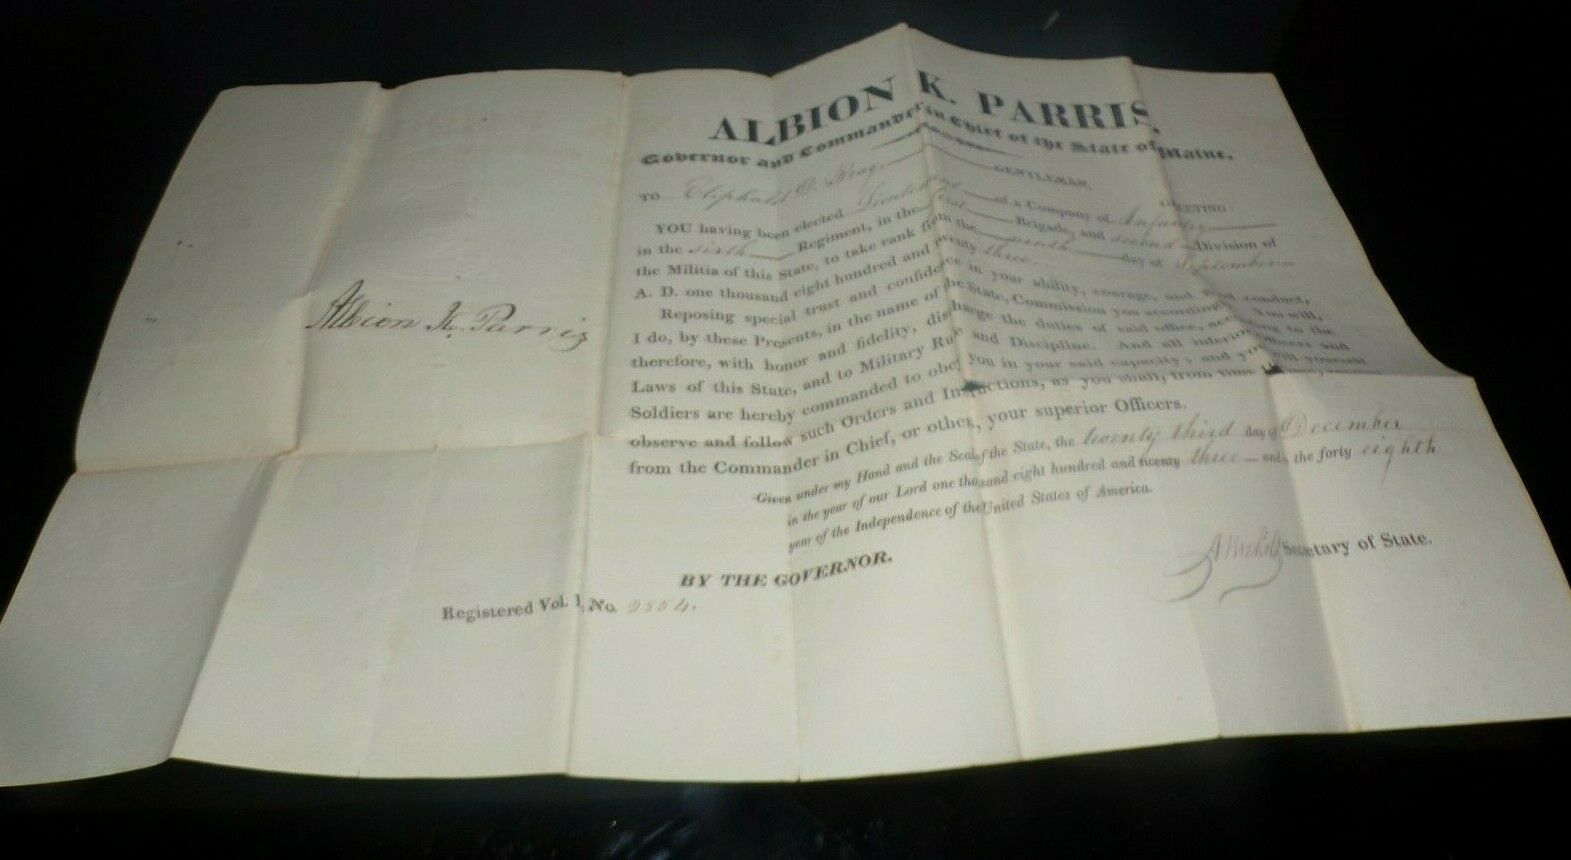 ALBION K. PARRIS,
Governor and Commander in Chief of the State of Maine,
TO Eliphalet D. GENTLEMAN, GREETING:
YOU having been elected of a Company of Infantry
in the sixth Regiment, in the first Brigade, and second Division of
the Militia of this State, to take rank from the ninth day of September
A. D. one thousand eight hundred and twenty three
Reposing special trust and confidence in your ability, courage, and good conduct,
I do, by these Presents, in the name of the State, Commission you accordingly. You will,
therefore, with honor and fidelity, discharge the duties of said office, according to the
Laws of this State, and to Military Rule and Discipline. And all inferior Officers and
Soldiers are hereby commanded to obey you in your said capacity; and you will yourself
observe and follow such Orders and Instructions, as you shall, from time
from the Commander in Chief, or other, your superior Officers.
Given under my Hand and the Seal of the State, the twenty third day of December
in the year of our Lord one thousand eight hundred and twenty three and the forty eighth
year of the Independence of the United States of America.
Albion K. Parris
BY THE GOVERNOR.
Secretary of State.
Registered Vol. 1, No. 2854.